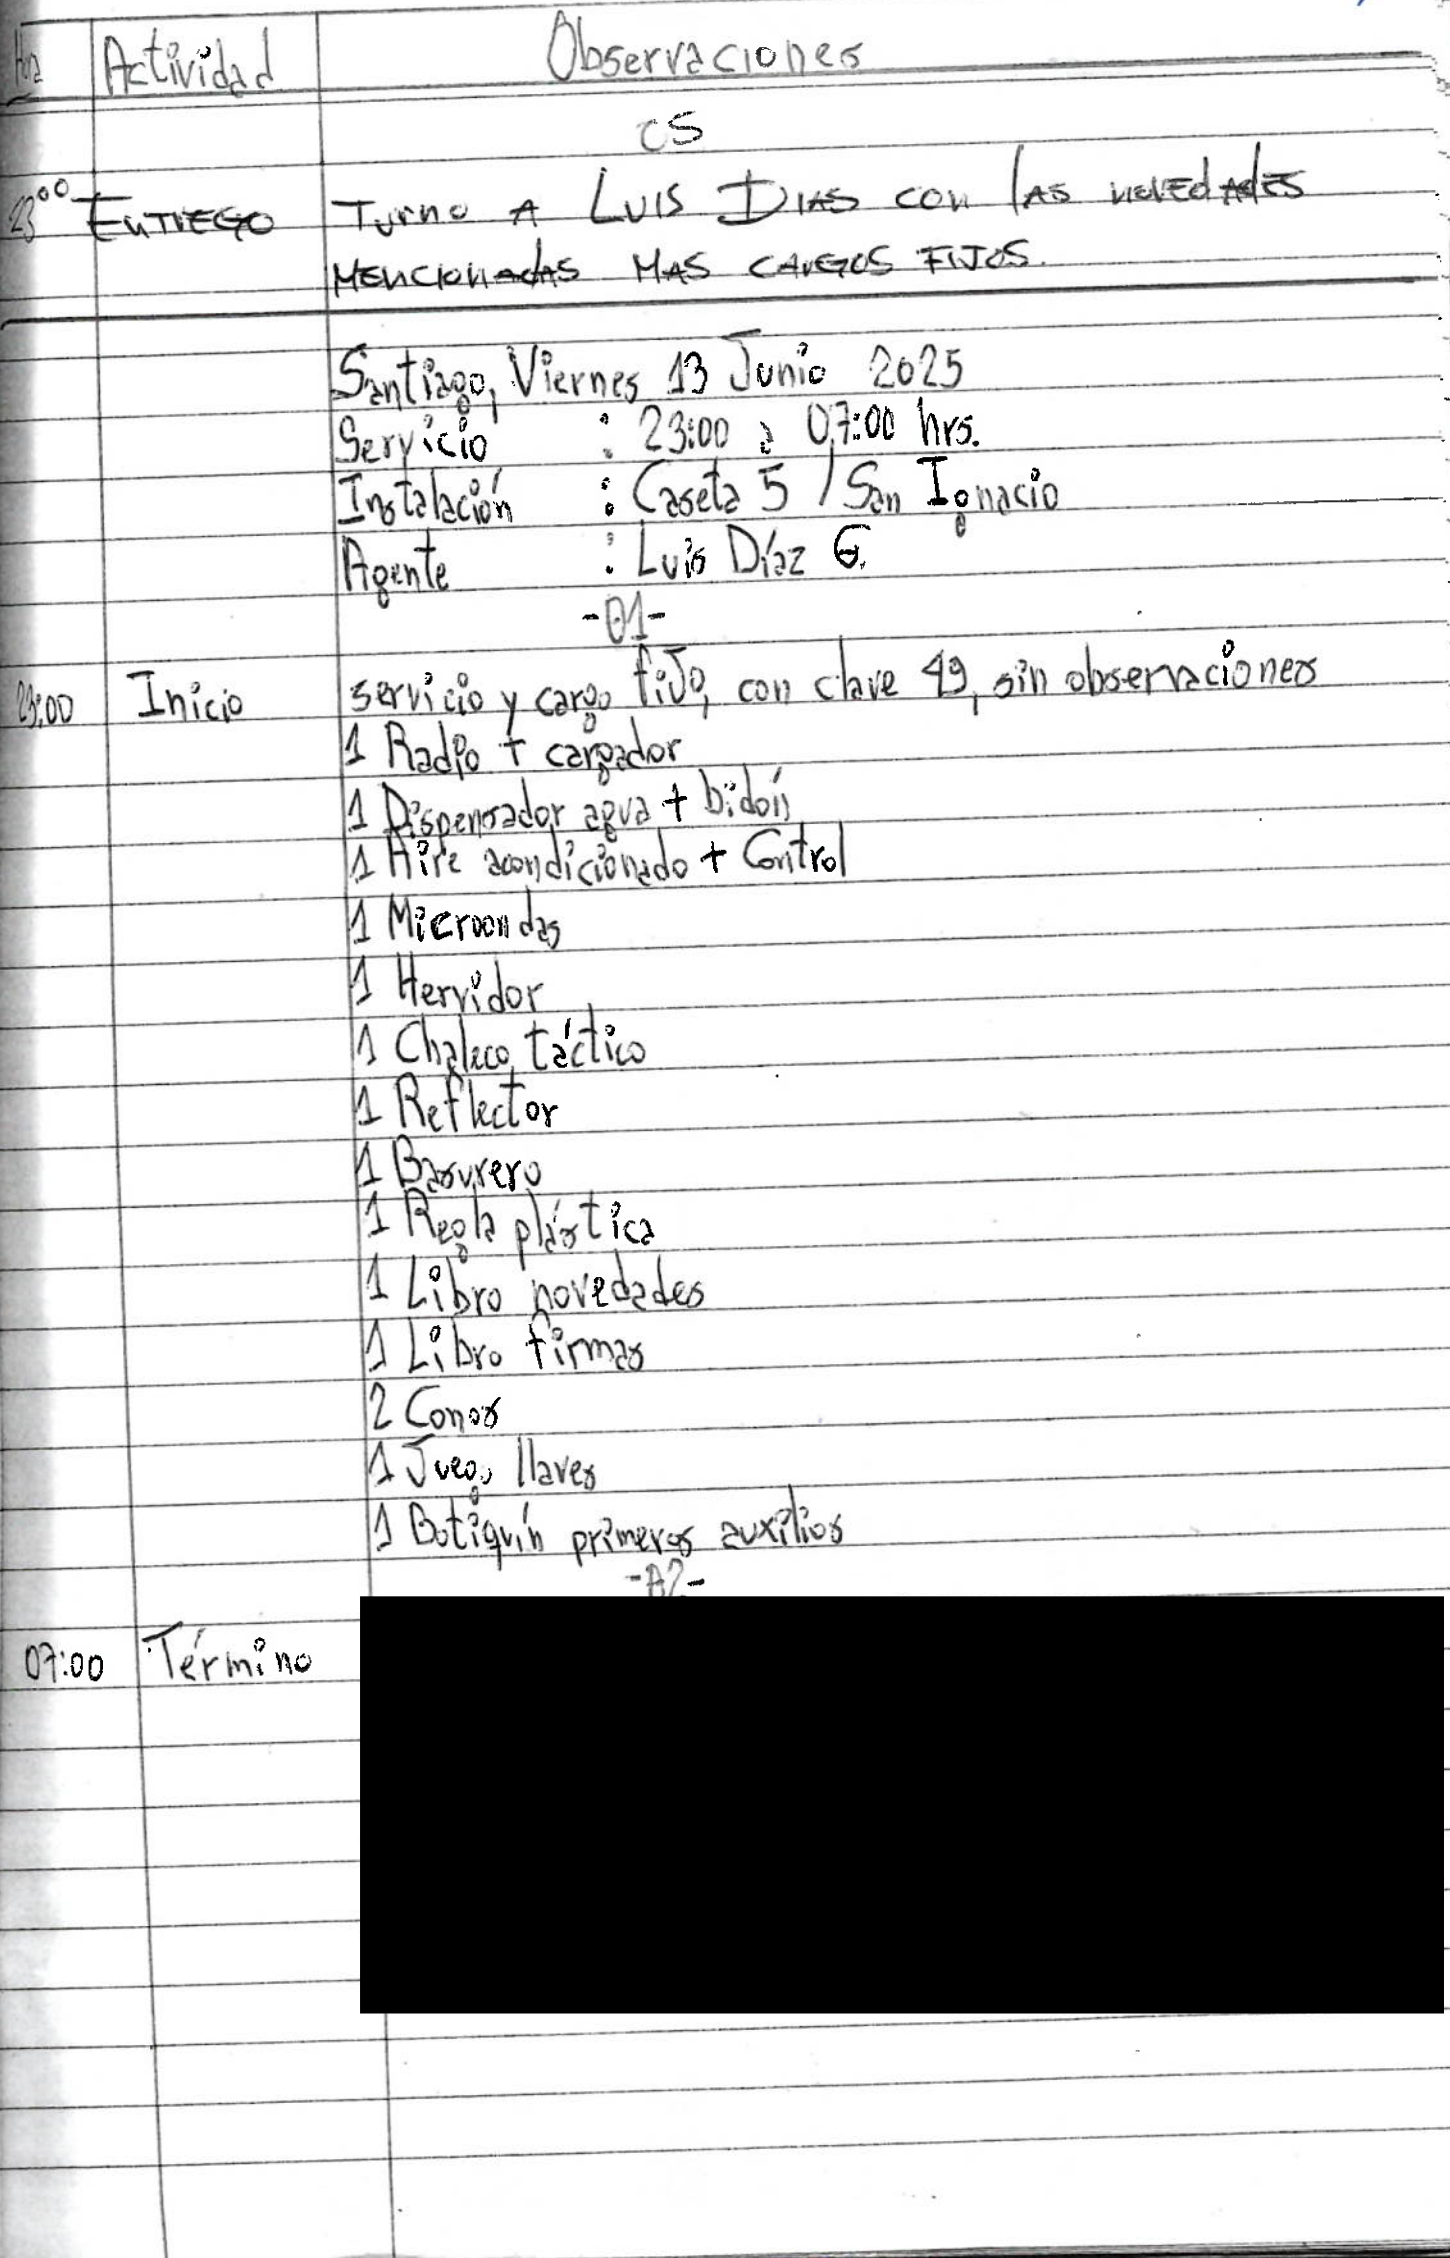 Hora Actividad Observaciones
C5
23°° ENTREGO TURNO A LUIS DIAS CON LAS NOVEDADES
MENCIONADAS MAS CARGOS FIJOS.
Santiago, Viernes 13 Junio 2025
Servicio : 23:00 a 07:00 hrs.
Instalación : Caseta 5 / San Ignacio
Agente : Luis Díaz G.
-01-
23:00 Inicio servicio y cargo fijo, con clave 49, sin observaciones
1 Radio + cargador
1 Dispensador agua + bidón
1 Aire acondicionado + Control
1 Microondas
1 Hervidor
1 Chaleco táctico
1 Reflector
1 Basurero
1 Regla plástica
1 Libro novedades
1 Libro firmas
2 Conos
1 Juego llaves
1 Botiquín primeros auxilios
-02-
07:00 Término